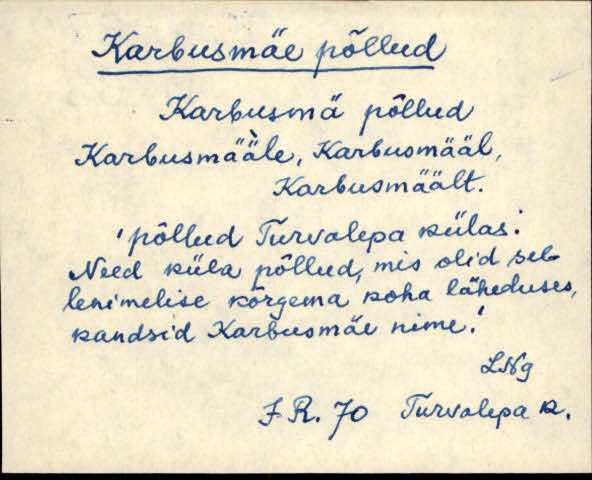 Karbusmäe põllud
Karbusmä põllud
Karbusmää̀le, Karbusmääl,
Karbusmäält.
'põllud Turvalepa külas:
Need küla põllud, mis olid sel-
lenimelise kõrgema koha läheduses,
kandsid Karbusmäe nime.'
LNg
J R. 70 Turvalepa k.